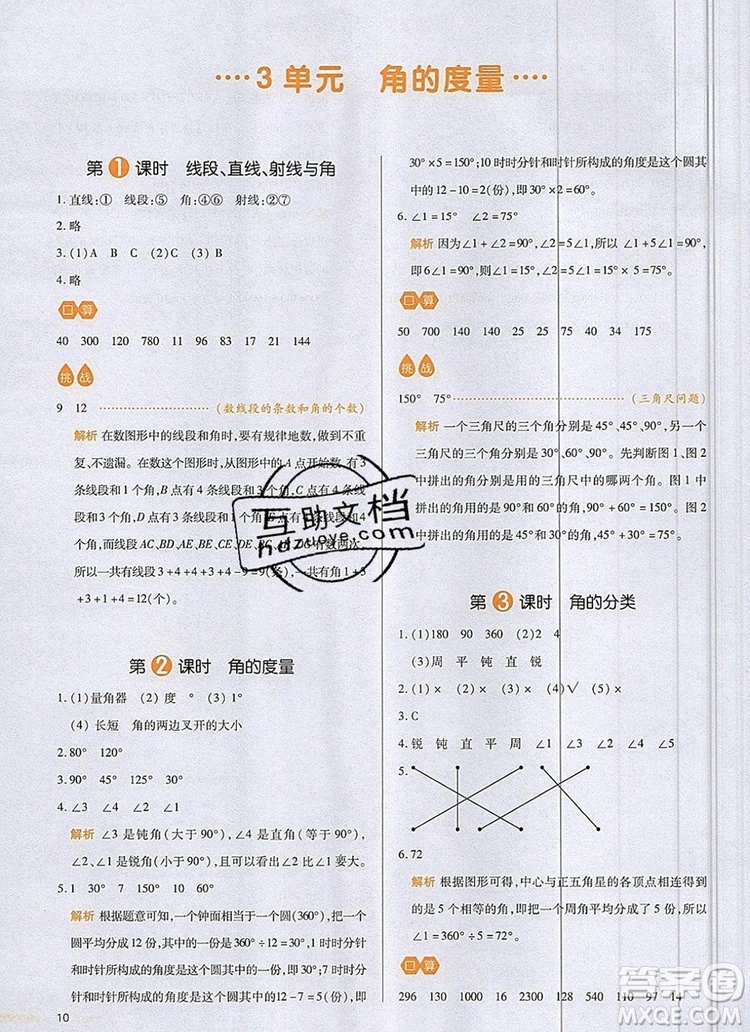 ····3单元　角的度量····
第1课时　线段、直线、射线与角
1.直线:①　线段:⑤　角:④⑥　射线:②⑦
2.略
3.(1)A　B　C　(2)C　(3)B
4.略
口算
40　300　120　780　11　96　83　17　21　144
挑战
9　12 ·················· (数线段的条数和角的个数)
解析 在数图形中的线段和角时,要有规律地数,不重复、
不遗漏。数这个图形时,从图形中的A点开始数,有3
段和1个角,
3个角,D点
个角,而线段AC、BD、AE、BE、CE、DE
所以一共有线段3+4+4+3+4=9(条),一共有角1+3
+3+1+4=12(个)。
第2课时　角的度量
1.(1)量角器　(2)度　°　(3)1°
(4)长短　角的两边叉开的大小
2.80°　120°
3.90°　45°　125°　30°　125°
4.∠3　∠2
解析 ∠3是钝角(大于90°),∠4是直角(等于90°),
∠2、∠1是锐角(小于90°)。可以看出∠2比∠1要大。
5.1　30°　7　150°　2　60°
解析 根据题意可知,一个钟面相当于一个圆(360°),把一个
圆平均分成12份,其中的一份是360°÷12=30°;5时时分针
和时针所构成的角度是这个圆其中的12-7=5(份),即
10
30°×5=150°;10时时分针和时针所构成的角度是这个圆其
中的12-10=2(份),即30°×2=60°。
6.∠1=15°　∠2=75°
解析 因为∠1+∠2=90°,∠2是∠1的5倍,所以∠1+5∠1=90°,
即6∠1=90°,则∠1=90°÷6=15°,∠2=15°×5=75°。
口算
50　700　140　140　25　25　25　130　134　175
挑战
150°　75° ·················· (三角尺问题)
解析 一个三角尺的三个角分别是45°、45°、90°,另一个
三角尺的三个角分别是30°、60°、90°。先判断图1、图2
中拼出的角分别是用的三角尺中的哪两个角。图1中
拼出的角用的是90°和60°,所以是90°+60°=150°;图2
中拼出的角用的是45°和30°,所以是45°+30°=75°。
第3课时　角的分类
1.(1)180　90　360　(2)2　4
(3)周　平　钝　直　锐
2.(1)×　(2)×　(3)×　(4)√　(5)×
3.C
4.锐　钝　直　平　周　∠1　∠2　∠4　∠3　∠5
5.
6.72
解析 根据图形可得,中心与正五角星的各顶点相连得到
的五个角大小相等,即把一个周角平均分成了5份,所以
∠1=360°÷5=72°。
口算
296　130　1000　16　2　540　120　110　97　14
互助文档
hdzuoye.com
答案圈
MXQE.COM